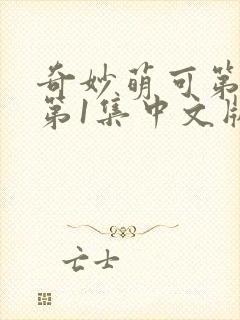 奇妙萌可第
第1集中文版
亡士